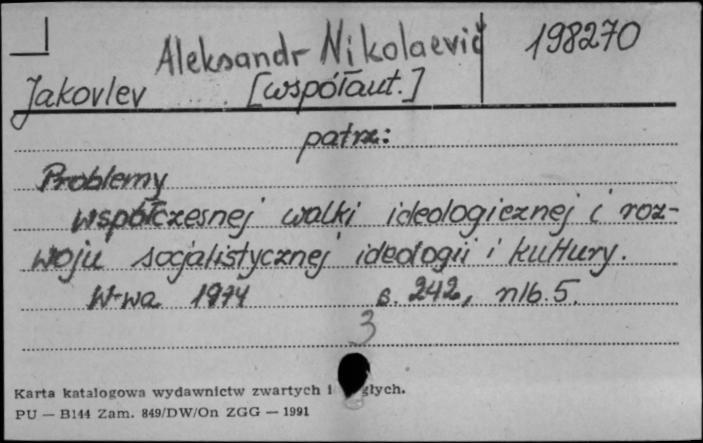 Aleksandr Nikolaevič 198270
Jakovlev [współaut.]
patrz:
Problemy
współczesnej walki ideologicznej i roz-
woju socjalistycznej ideologii i kultury.
W-wa 1974 s. 242, nlb. 5.
3
Karta katalogowa wydawnictw zwartych i głych.
PU — B144 Zam. 849/DW/On ZGG — 1991